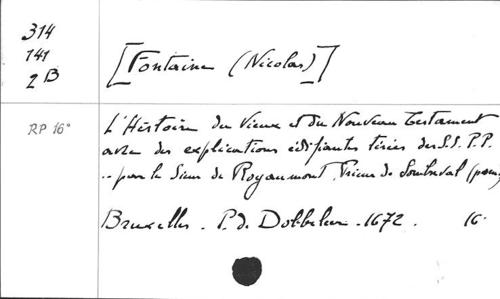 314
141
2 B
[Fontaine (Nicolas)]
RP 16°
L'Histoire du Vieux et du Nouveau Testament
avec des explications édifiantes tirées des S.S. P.P.
.. par le Sieur de Royaumont, Prieur de Sombreval (pseu
Bruxelles. P. de Dobbeleer. 1672. 16°